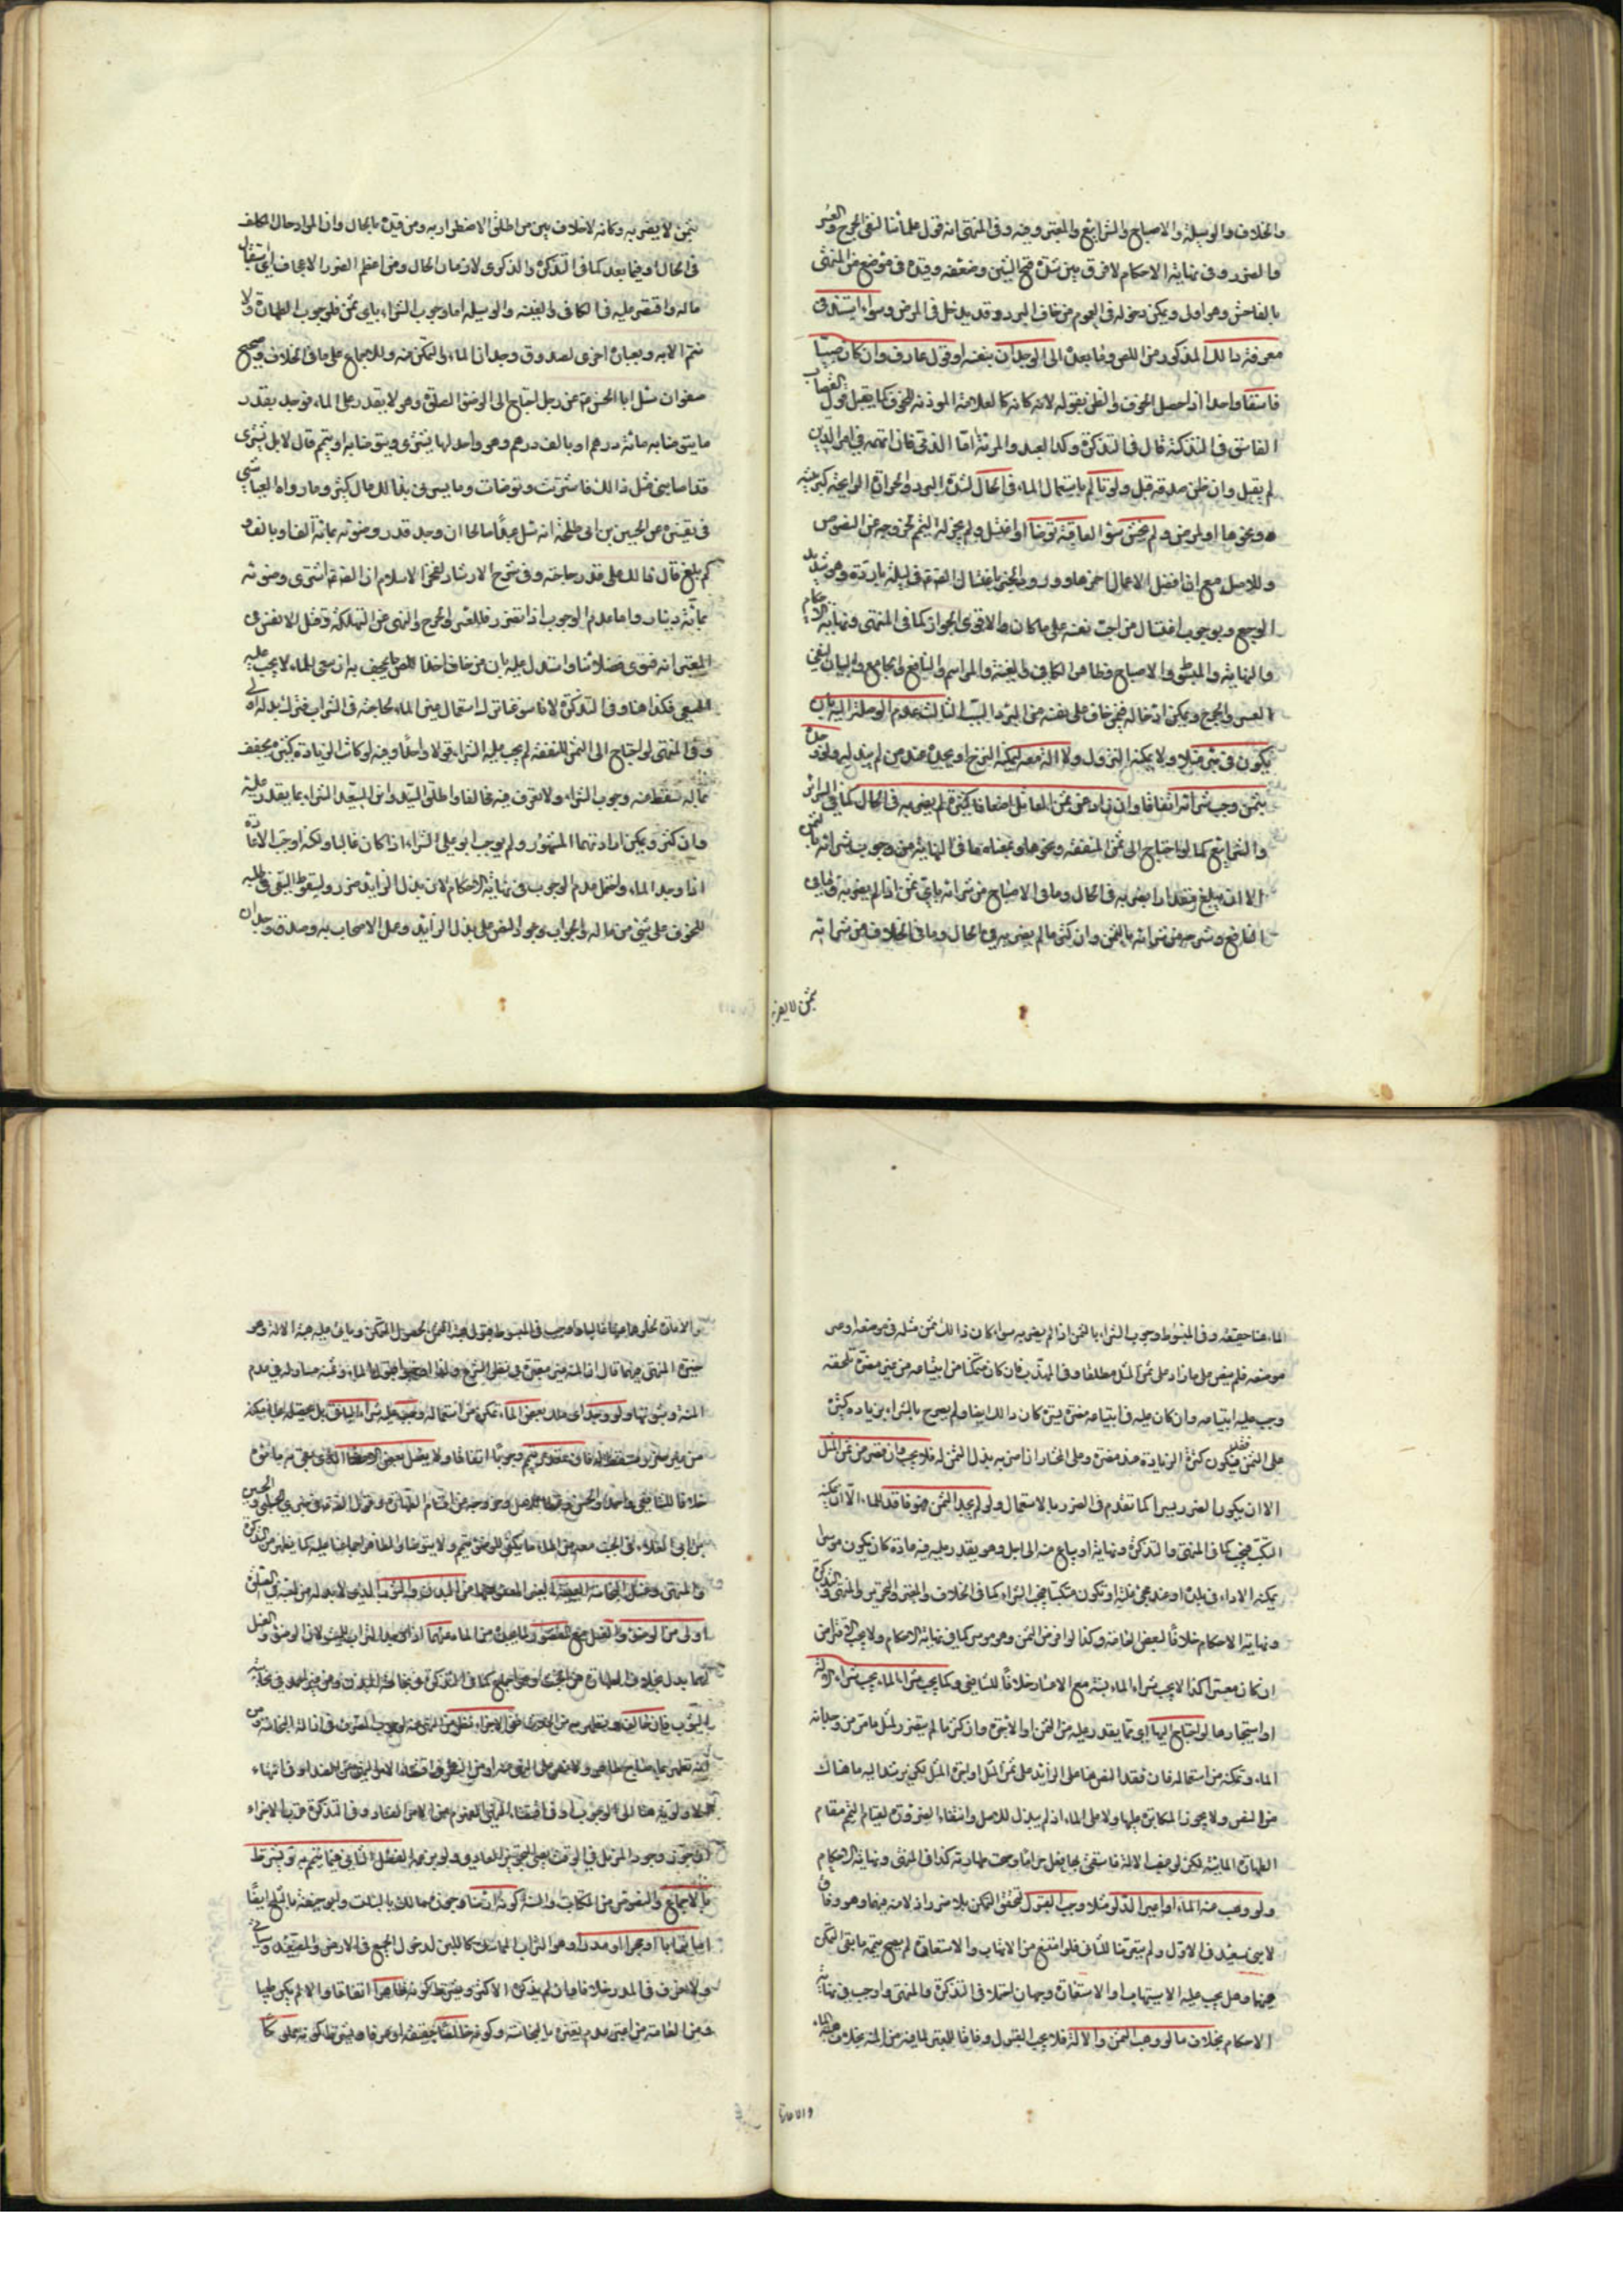 والخلاف والوسيلة والاصباح والشرايع والمعتبر وفيه وفي المنتهى انه قول علمائنا لنفي الحرج والعسر
والضرر وفي نهاية الاحكام لا فرق بين شدة قبح الشين وضعفه وقيده في موضع من المنتهى
بالفاحش وهو اولى ويمكن دخوله في العموم من خاف البرد وقد يدخل في المرض وسواء استند في
معرفة ذلك المذكور من اللص وما بعده الى الوجدان بنفسه او قول عارف وان كان صبيا
فاسقا واحدا اذا حصل الخوف والظن بقوله لانه كانه كالعلامة الموذنة للخوف كما يقبل قول القصاب
الفاسق في التذكية قال في التذكرة وكذا العبد والمرئة اما الذمي فان اتهمه في امر الدين
لم يقبل وان ظن صدقه قبل ولو تألم باستعمال الماء في الحال لشدة البرد والحرارة او لرايحة كبريتية
ونحوها او لمرض ولم يخش سوء العاقبة توضأ او اغتسل ولم يجز له التيمم لخروجه عن النصوص
وللاصل مع ان افضل الاعمال احمزها وورود الخبر باغتسال الصادق في ليلة باردة وهو شديد
الوجع وبوجوب اغتسال من اجنب نفسه على ما كان والاقوى الجواز كما في المنتهى ونهاية الاحكام
والنهاية والمبسوط والاصباح وظاهر الكافي والغنية والمراسم والنافع والجامع والبيان لنفي
العسر والحرج ويمكن ادخاله فيمن خاف على نفسه من البرد السبب الثالث عدم الوصلة اليه بان
يكون في بئر مثلا ولا يمكنه النزول ولا آلة معه يمكنه النزح او يجده عند من لم يبذله ولو وجده
بثمن وجب شرائه اتفاقا وان زاد عن ثمن المماثل اضعافا كثيرة لم يضر به في الحال كما في السرائر
والشرايع كما لو احتاج الى ثمن للنفقة ونحوها وبمعناه ما في النهاية من وجوب شرائه بالثمن
الا ان يبلغ مقدارا يضر به في الحال وما في الاصباح من شرائه باي ثمن اذا لم يضر به وما في
النافع وشرحه من شرائه بالثمن وان كثر ما لم يضر به في الحال وما في الخلاف من شرائه
بثمن لا يضر به
بثمن لا يضر به وكانه لا خلاف بين من اطلق الاضطرار به ومن قيده بالحال وان المراد حال المكلف
في الحال او فيما بعد كما في التذكرة والذكرى لا زمان الحال ومن اعظم الضرر الاجحاف اي استيصال
ماله واقتصر عليه في الكافي والغنية والوسيلة اما وجوب الشراء باي ثمن فلوجوب الطهارة ولا
تتم الا به وبعبارة اخرى لصدق وجدان الماء والتمكن منه وللاجماع على ما في الخلاف وصحيح
صفوان سئل ابا الحسن ع عن رجل احتاج الى الوضوء للصلوة وهو لا يقدر على الماء فوجد بقدر
ما يتوضا به بمائة درهم او بالف درهم وهو واجد لها يشتري ويتوضا به او يتيمم قال لا بل يشتري
قد اصابني مثل ذلك فاشتريت وتوضات وما يسرني بذلك مال كثير وما رواه العياشي
في تفسيره عن الحسين بن ابي طلحة انه سئل عبدا صالحا ان وجد قدر وضوئه بمائة الف او بالف و
كم بلغ قال ذلك على قدر جدته وفي شرح الارشاد لفخر الاسلام ان الصادق اشترى وضوئه
بمائة دينار واما عدم الوجوب اذا تضرر فللعسر والحرج والنهي عن التهلكة وقتل الانفس وفي
المعتبر انه فتوى فضلائنا واستدل عليه بان من خاف اخذ اللص ما يجحف به ان سعى للماء لا يجب عليه
السعي فكذا هنا وفي التذكرة لانا سوغناتر ك استعمال عين الماء لحاجته في الشرب فترك بدله اولى
وفي المنتهى لو احتاج الى الثمن للنفقة لم يجب عليه الشراء قولا واحدا وفيه لو كانت الزيادة كثيرة تجحف
بماله سقط عنه وجوب الشراء ولا نعرف فيه مخالفا واطلق السيد وابن السعيد الشراء بما يقدر عليه
وان كثر ويمكن ارادتهما المشهور ولم يوجب ابو علي الشراء اذا كان غاليا ولكنه اوجب الاعادة
اذا وجد الماء واحتمل عدم الوجوب في نهاية الاحكام لان بذل الزايد ضرر ولسقوط السعي في طلبه
للخوف على شئ من ماله والجواب وجود النص على بذل الزايد وعمل الاصحاب به وصدق وجدان
الماء هنا حقيقة وفي المبسوط وجوب الشراء بالثمن اذا لم يضر به سواء كان ذلك ثمن مثله في موضعه او غير
موضعه فلم ينص على ما زاد على ثمن المثل مطلقا وفي المهذب فان كان متمكنا من ابتياعه من غير مضرة تلحقه
وجب عليه ابتياعه وان كان عليه في ابتياعه مضرة يسيرة كان ذلك ايضا ولم يصرح بالشراء بزيادة كثيرة
على الثمن فقد يكون كثرة الزيادة عنده مضرة وعلى المختار اذا ضر به بذل الثمن له فلا يجب وان قصر من ثمن المثل
الا ان يكون الضرر يسيرا كما تقدم في الضرر بالاستعمال ولو لم يجد الثمن فهو فاقد للماء الا ان يمكنه
التكسب فيجب كما في المنتهى والتذكرة ونهاية او يباع منه الى اجل وهو يقدر عليه فيه عادة كان يكون موسرا
يمكنه الاداء في بلده او عند مجئ غلة او يكون متكسبا فيجب الشراء كما في الخلاف والمعتبر والتحرير والمنتهى والتذكرة
ونهاية الاحكام خلافا لبعض العامة وكذا لو اقرض الثمن وهو موسر كما في نهاية الاحكام ولا يجب الاقتراض
ان كان معسرا كذا لا يجب شراء الماء بنسيئة مع الاعسار خلافا للشافعي وكما يجب شراء الماء يجب شراء الآلة
او استيجارها لو احتاج اليها اي بما يقدر عليه من الثمن او الاجرة وان كثر ما لم يتضرر لمثل ما مر من وجدانه
الماء وتمكنه من استعماله فان فقد النص هنا على الزايد على ثمن المثل او اجرة المثل يكفي مرشدا اليه ما هناك
من النص ولا يجوز المكابرة عليها ولا على الماء اذ لم يبذل للاصل وانتفاء الضرورة لقيام التيمم مقام
الطهارة المائية لكن لو غصب الآلة فاستقى بها فعل حراما وصحت طهارته كذا في المنتهى ونهاية الاحكام
ولو وهب منه الماء او اعير الدلو مثلا وجب القبول لتحقق التمكن بلا ضرر اذ لا منة فيهما وهو وفاق
لابن سعيد في الاول ولم يتعرضا للثاني فلو امتنع من الاتهاب والاستعارة لم يصح تيممه ما بقي التمكن
منهما وهل يجب عليه الاستيهاب او الاستعارة وجهان احتملا في التذكرة والمنتهى واوجب في نهاية
الاحكام بخلاف ما لو وهب الثمن او الآلة فلا يجب القبول وفاقا للمعتبر لما فيه من المنة بخلاف هبة الماء
والاعارة
والاعارة لخلوهما عنها غالبا واوجب في المبسوط قبول هبة الثمن لحصول التمكن وياتي عليه هبة الآلة وهو
خيرة المنتهى فيهما قال اذ المنة غير معتبرة في نظر الشرع ولذا اوجبوا قبول الماء وثمنه مساو له في عدم
المنة وثبوتها ولو وجد اي ملك بعض الماء تمكن من استعماله وجب عليه شراء الباقي بل تحصيله بما يمكنه
من غير ضرر مسقط له فان تعذر تيمم وجوبا اتفاقا ولا يغسل بعض الاعضاء الذي يفي به ما عنده
خلافا للشافعي واحمد والحسن وعطا للاصل وخروجه من اقسام الطهارة وقول الصادق في خبري الحلبي والحسين
بن ابي العلاء في الجنب معه من الماء ما يكفي للوضوء يتيمم ولا يتوضا والظاهر اجماعنا عليه كما يظهر من التذكرة
والمنتهى وغسل النجاسة العينية الغير المعفو عنها من البدن والثوب الذي لا بد له من لبسه في الصلوة
اولى من الوضوء والغسل مع القصور فيما عنده من الماء عنهما اذا وجد التراب للتيمم لان الوضوء والغسل
لهما بدل بخلاف الطهارة من الخبث وهو اجماع كما في التذكرة ونجاسة البدن وعن احمد في نجاسة
الثوب فان خالف وتطهر به من الحدث ففي الاجزاء نظر من النهي عنه لوجوب الصرف في ازالة النجاسة ومن
انه تطهر بماء مباح طاهر ولا نص على النهي عنه وعن النظر في اقتضاء الامر النهي عن الضد او في انتهاء
الاولوية هنا الى الوجوب او في اقتضاء النهي المفهوم من الامر الفساد وفي التذكرة قرب الاجزاء
ان جوز وجود المزيل في الوقت يعني التجويز العادي ولو بزعمه الفصل الثاني فيما يتيمم به ويشترط
بالاجماع والنصوص من الكتاب والسنة كونه ارضا وجوزه مالك بالثلج وابو حنيفة بالملح ايضا
اما ترابا او حجرا او مدرا وهو التراب المتماسك كاللبن لدخول الجميع في الارض والصعيد وسياتي
ولا نعرف في المدر خلافا وان لم يذكره الاكثر ويشترط كونه طاهرا اتفاقا والا لم يكن طيبا
ومن العامة من اعتبر عدم تغيره بالنجاسة وكونه خالصا حقيقة او عرفا ويشترط كونه مملوكا